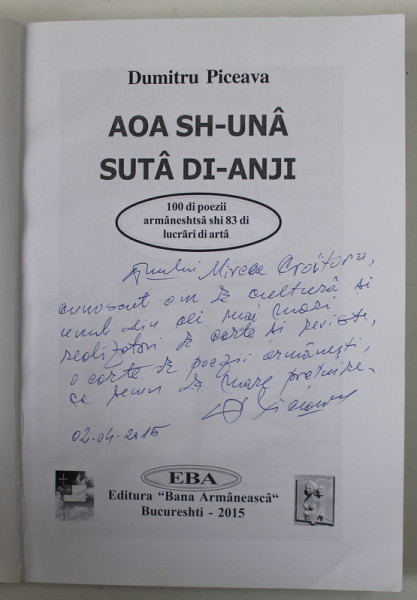 Dumitru Piceava
AOA SH-UNÂ
SUTÂ DI-ANJI
100 di poezii
armâneshtsâ shi 83 di
lucrâri di artâ
Mircea Croitoru,
cunoscut om de cultură și
unul din cei mai mari
realizatori de carte și reviste,
o carte de poezii armânești,
ca semn de mare prețuire.
02-04-2015
EBA
Editura "Bana Armâneascâ"
Bucureshti - 2015